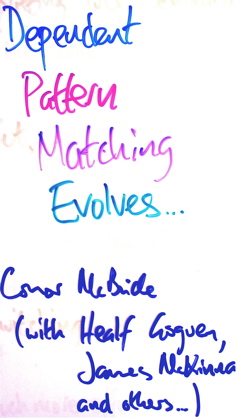 Dependent
Pattern
Matching
Evolves...
Conor McBride
(with Healf Goguen,
James McKinna
and others...)